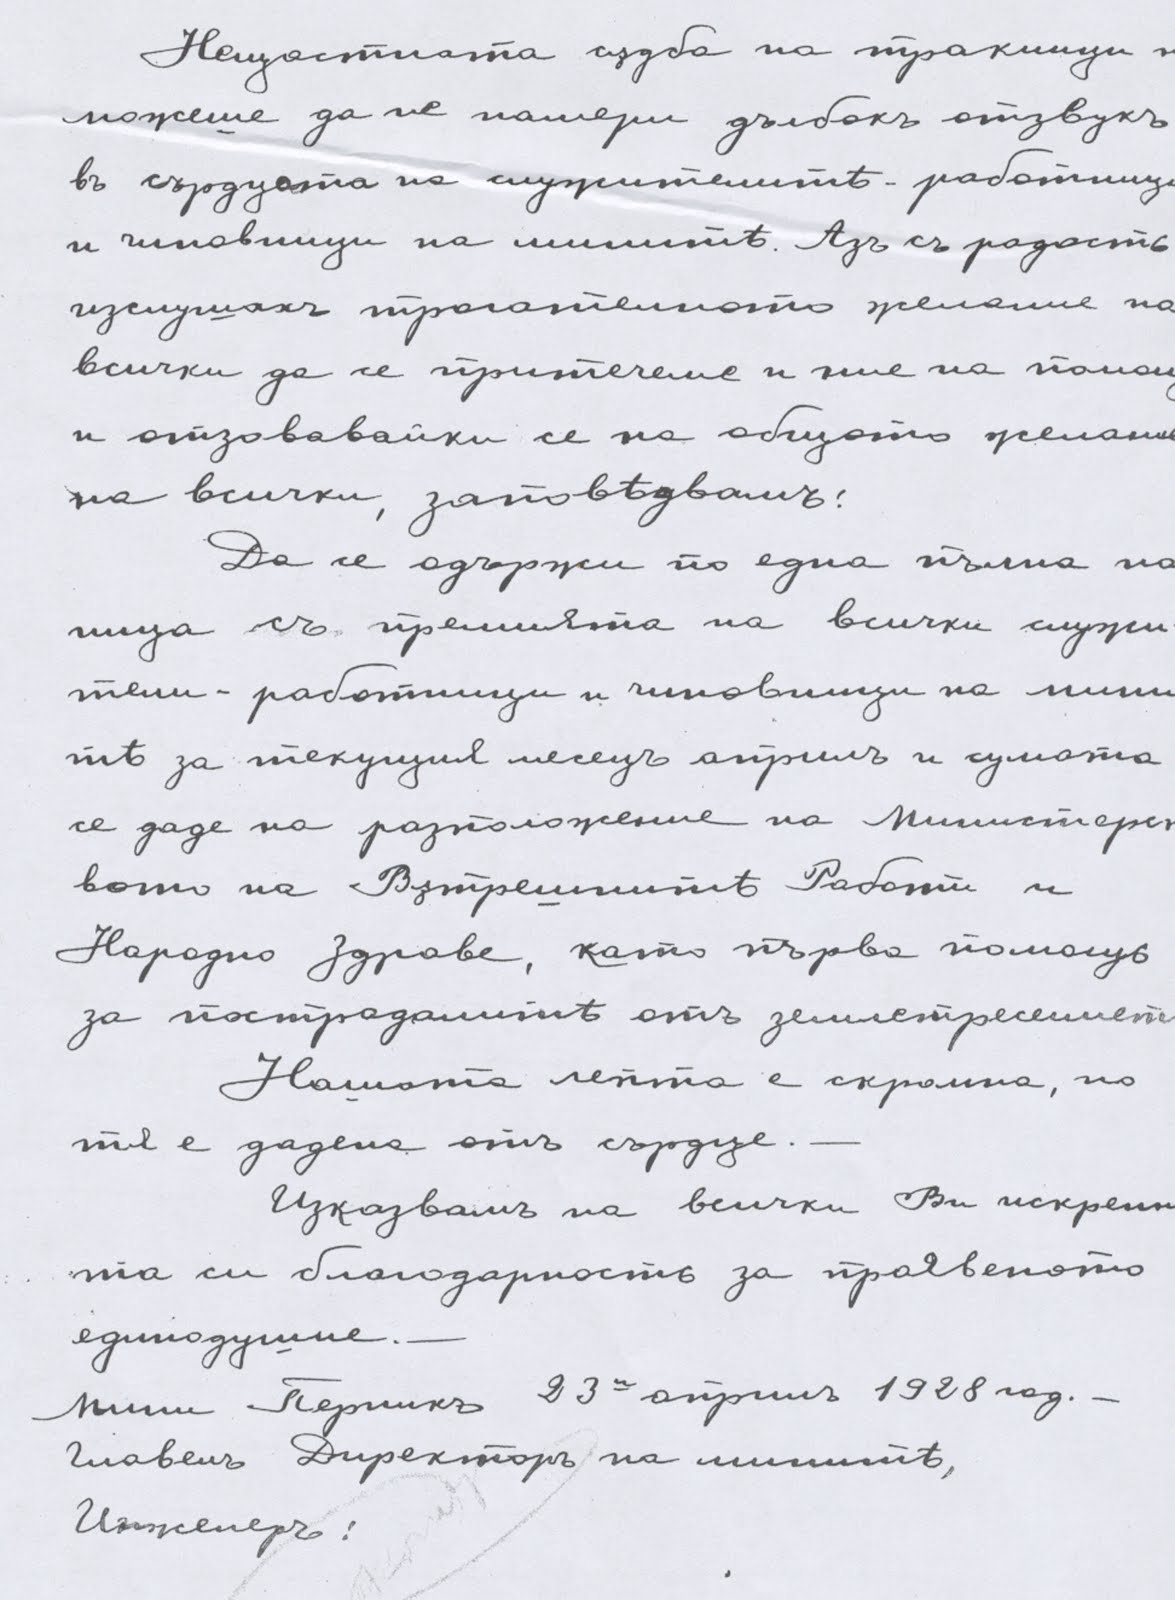 Нещастната съдба на тракийци н
можеше да не намери дълбокъ отзвукъ
въ сърдцата на служителитѣ - работници
и чиновници на минитѣ. Азъ съ радость
изслушахъ трогателното желание на
всички да се притечеме и ние на помощ
и отзовавайки се на общото желание
на всички, заповѣдвамъ:
Да се одържи по една пълна на
ница съ премията на всички служи
тели - работници и чиновници на мини
тѣ за текущия месецъ априлъ и сумата
се даде на разположение на Министерст
вото на Вѫтрешнитѣ Работи и
Народно Здраве, като първа помощь
за пострадалитѣ отъ землетресението
Нашата лепта е скромна, но
тя е дадена отъ сърдце. —
Изказвамъ на всички Ви искренн
та си благодарность за проявеното
единодушие. —
Мини Перникъ 23ий априлъ 1928 год. —
Главенъ Директоръ на минитѣ,
Инженеръ: